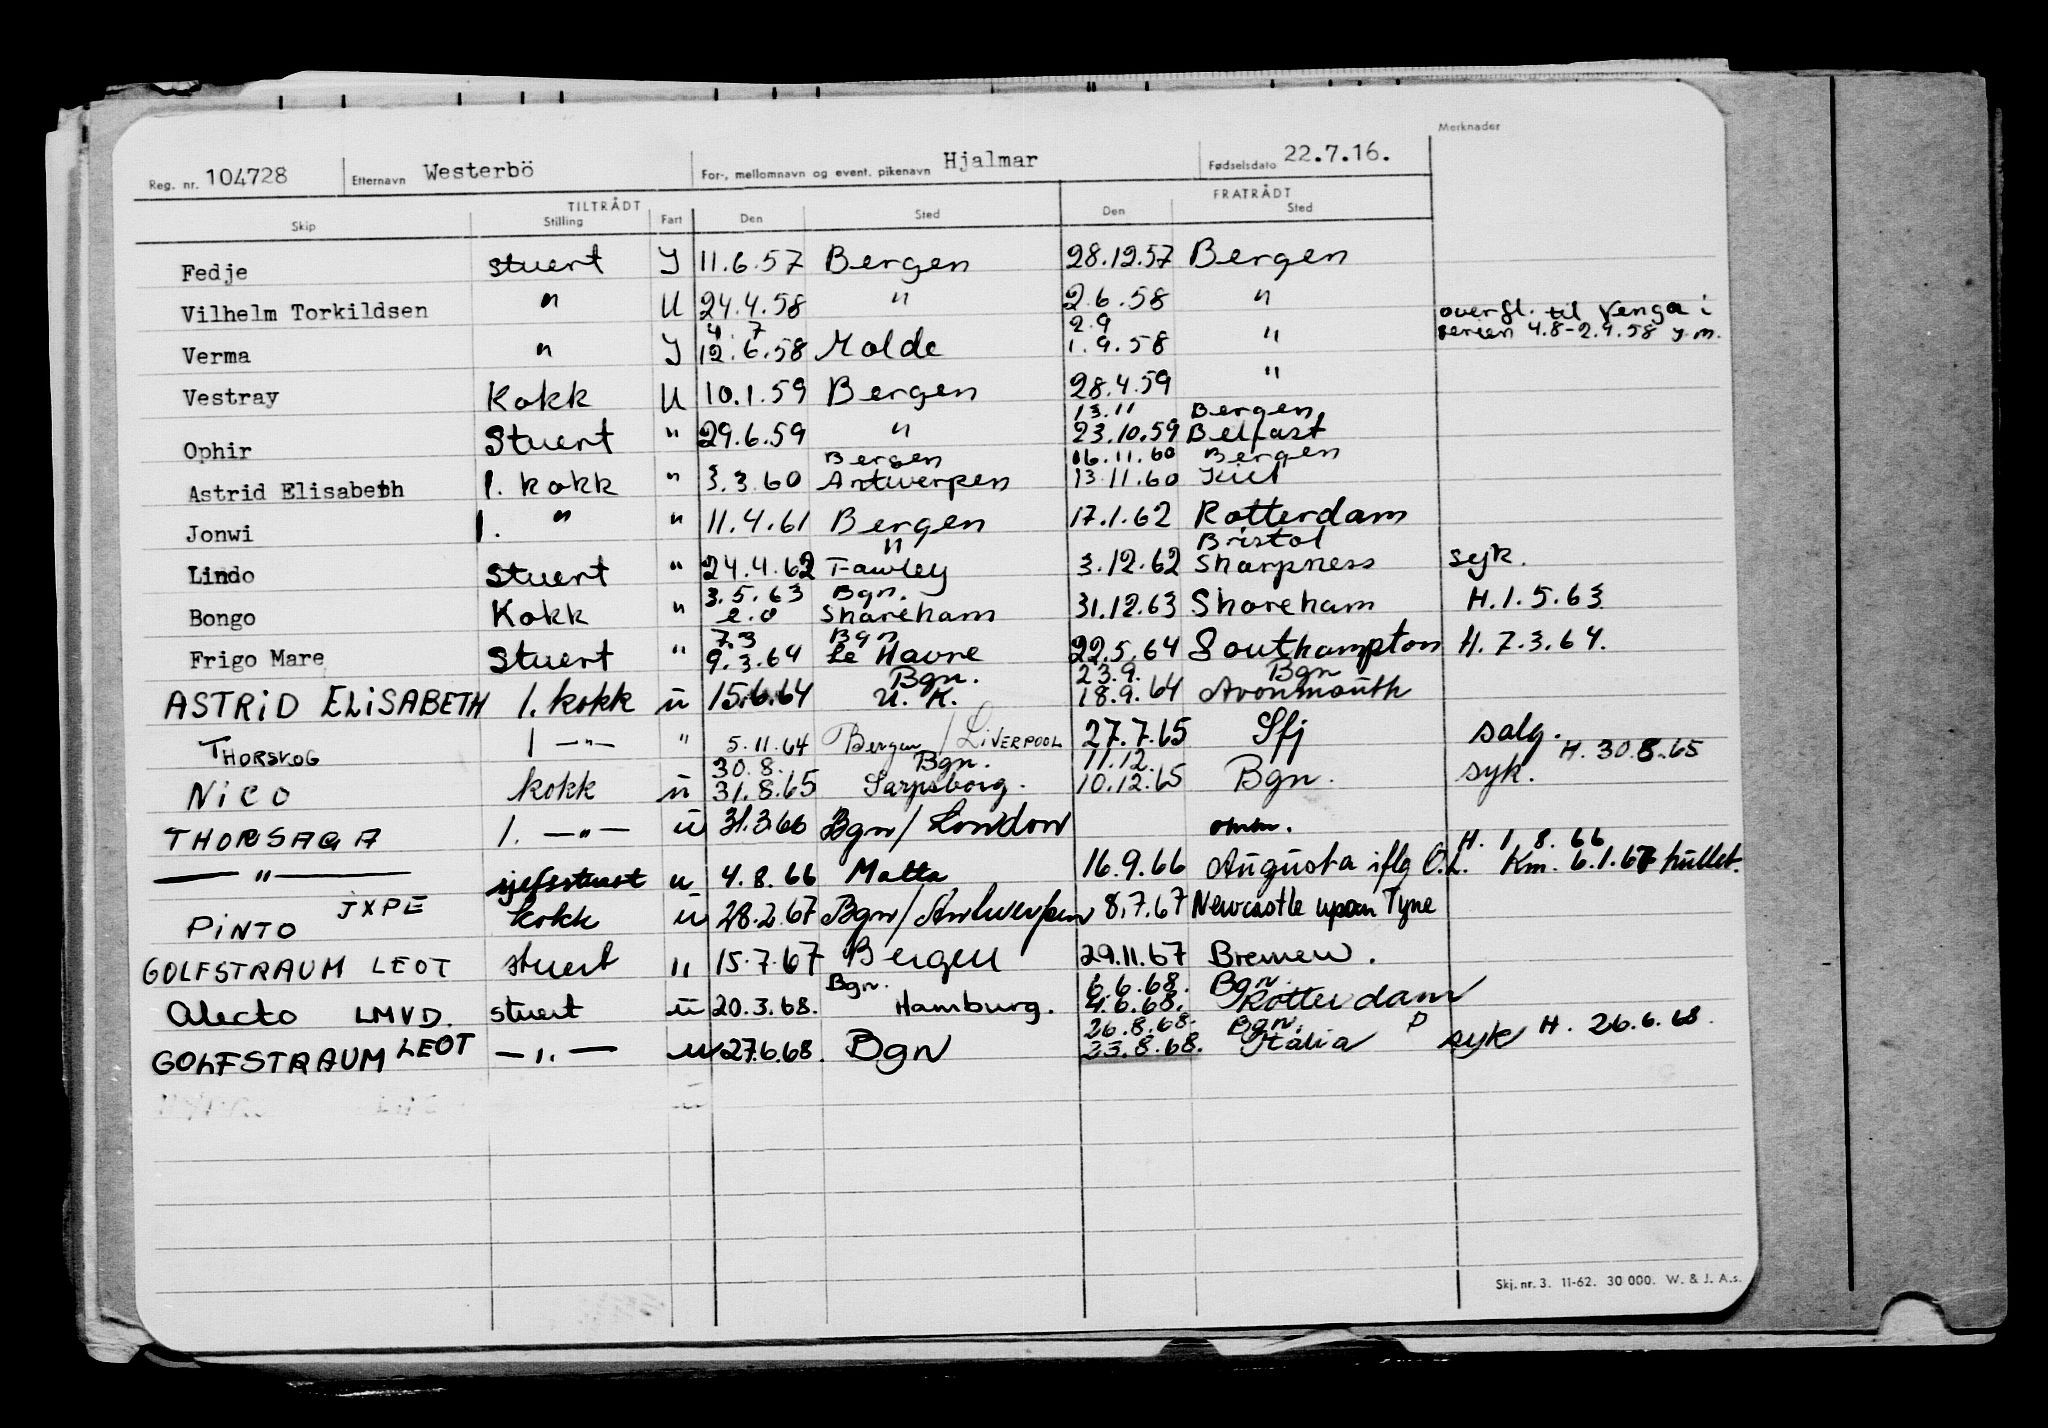 Merknader
Reg. nr. 104728 Etternavn Westerbö For-, mellomnavn og event. pikenavn Hjalmar Fødselsdato 22.7.16.
TILTRÅDT FRATRÅDT
Skip Stilling Fart Den Sted Den Sted
Fedje stuert J 11.6.57 Bergen 28.12.57 Bergen
Vilhelm Torkildsen " U 24.4.58 " 2.6.58 " overfl. til Venga i
4. 7 2.9 ferien 4.8-2.9.58 y.m.
Verma " J 12.6.58 Molde 1.9.58 "
Vestray Kokk U 10.1.59 Bergen 28.4.59 "
13.11 Bergen
Ophir Stuert " 29.6.59 " 23.10.59 Belfast
Bergen 16.11.60 Bergen
Astrid Elisabeth 1. kokk " 3.3.60 Antwerpen 13.11.60 Kiel
Jonwi 1. " " 11.4.61 Bergen 17.1.62 Rotterdam
" Bristol
Lindo Stuert " 24.4.62 Fawley 3.12.62 Sharpness syk.
3.5.63 Bgn.
Bongo Kokk " e.o Shoreham 31.12.63 Shoreham H.1.5.63
7.3 Bgn
Frigo Mare Stuert " 9.3.64 Le Havre 22.5.64 Southampton H. 7.3.64.
Bgn. 23.9. Bgn
ASTRID ELISABETH 1. kokk u 15.6.64 U.K. 18.9.64 Avonmouth
THORSKOG 1 —"— " 5.11.64 Bergen / LIVERPOOL 27.7.65 Sfj salg.
30.8. Bgn. 11.12. H. 30.8.65
NICO kokk u 31.8.65 Sarpsborg. 10.12.65 Bgn. syk.
THORSAGA 1. —"— u 31.3.66 Bgn / London omm.
H. 1.8.66
—"— sjefsstuert u 4.8.66 Malta 16.9.66 Augusta iflg O.L. Km. 6.1.67 hullet.
PINTO JXPE kokk u 28.2.67 Bgn / Antwerpen 8.7.67 Newcastle upon Tyne
GOLFSTRAUM LEOT stuert " 15.7.67 Bergen 29.11.67 Bremen.
Bgn. 6.6.68. Bgn
Alecto LMVD. stuert u 20.3.68. Hamburg. 4.6.68. Rotterdam
26.8.68. Bgn. P
GOLFSTRAUM LEOT —"— u 27.6.68. Bgn 23.8.68. Italia syk H. 26.6.68.
Skj. nr. 3. 11-62. 30 000. W. & J. A.s.